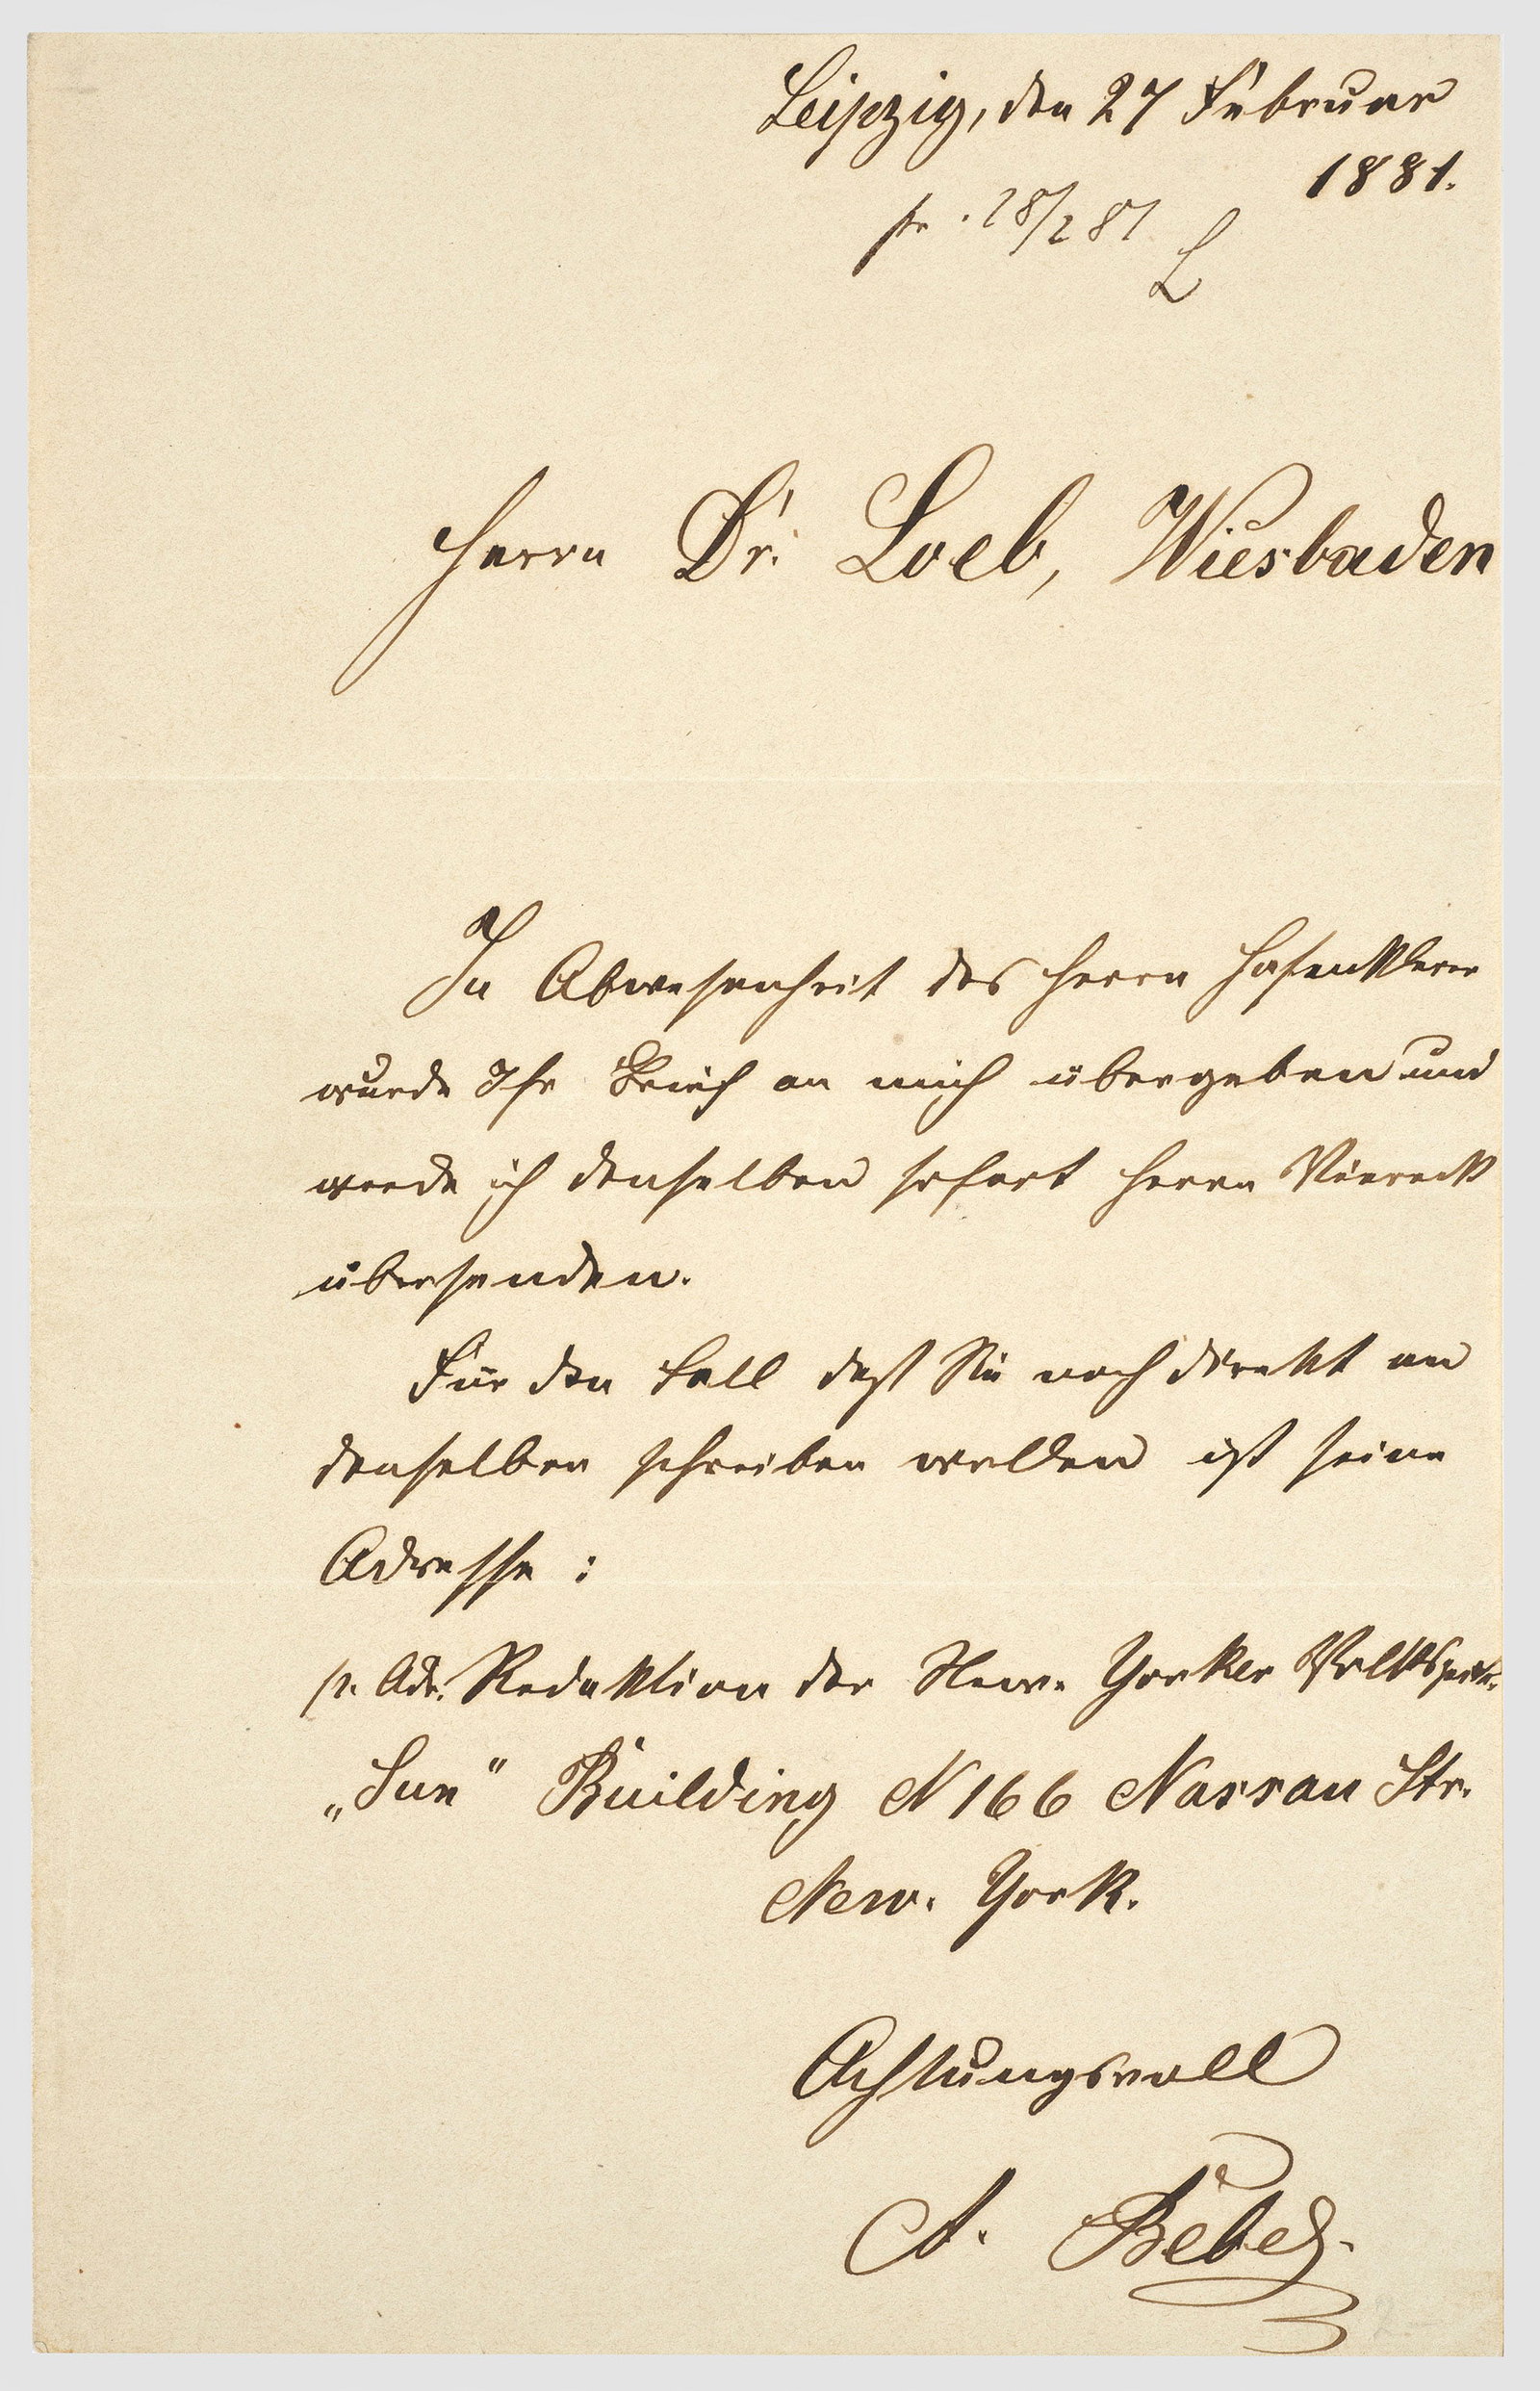 Leipzig, den 27 Februar
1881.
pr. 28/2 81
L
Herrn Dr. Loeb, Wiesbaden
In Abwesenheit des Herrn Hasenklever
wurde Ihr Brief an mich übergeben und
werde ich denselben sofort Herrn Viereck
übersenden.
Für den Fall daß Sie noch direkt an
denselben schreiben wollen ist seine
Adresse:
p. Adr. Redaktion der New-Yorker Volkszeit.
„Sun" Building N 166 Nassau Str.
New-York.
Achtungsvoll
A. Bebel.